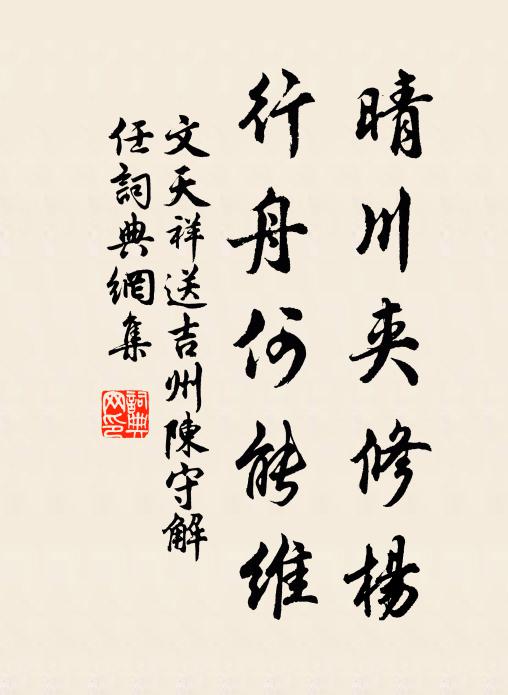 晴川夾修楊
行舟何能維
文天祥送吉州陳守解
任詞典網集
詞典
网印